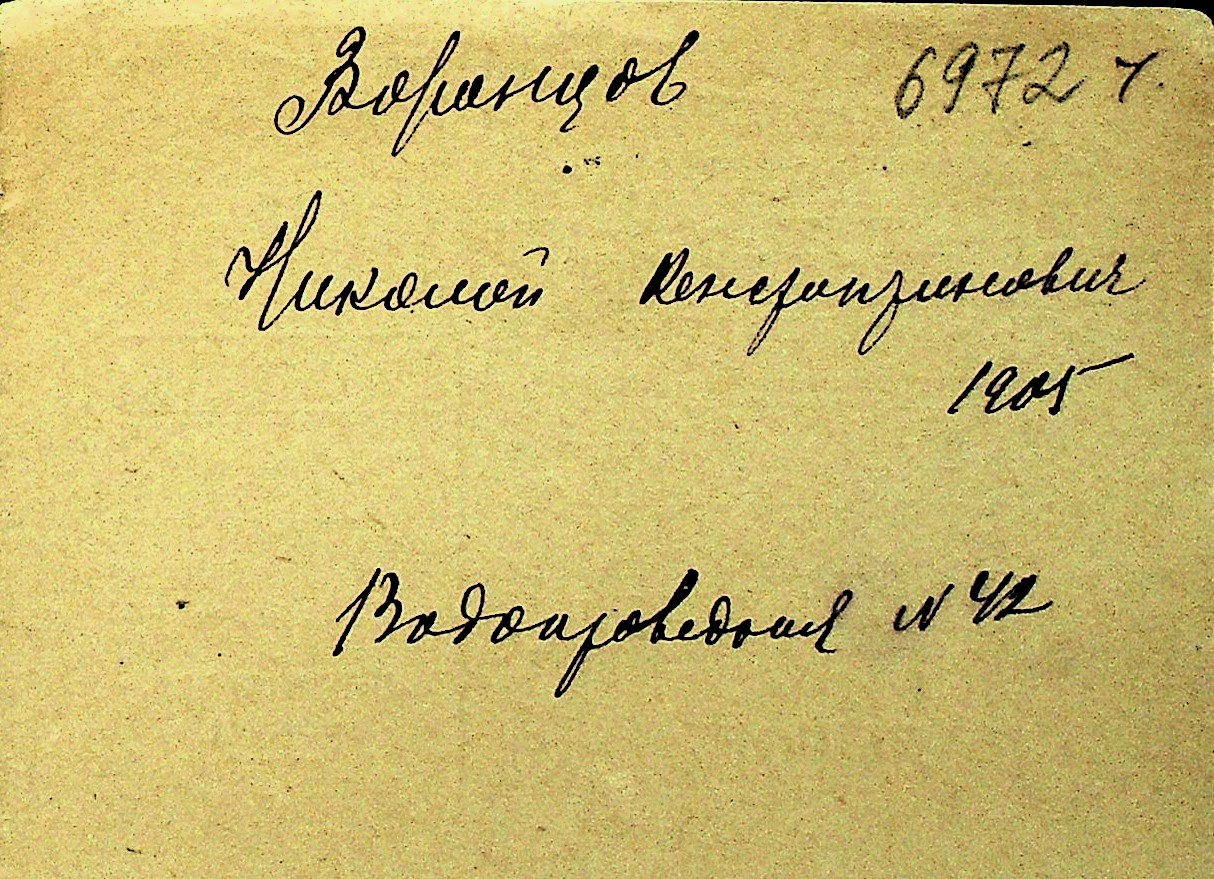 Воранцов 6972 ч.
Николай Константинович
1905
Водопроводная N 42